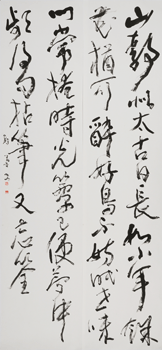 山靜似太古日長如小年餘
花猶可醉好鳥不妨眠世味
門常掩時光簟已便夢中
頻得句拈筆又忘筌